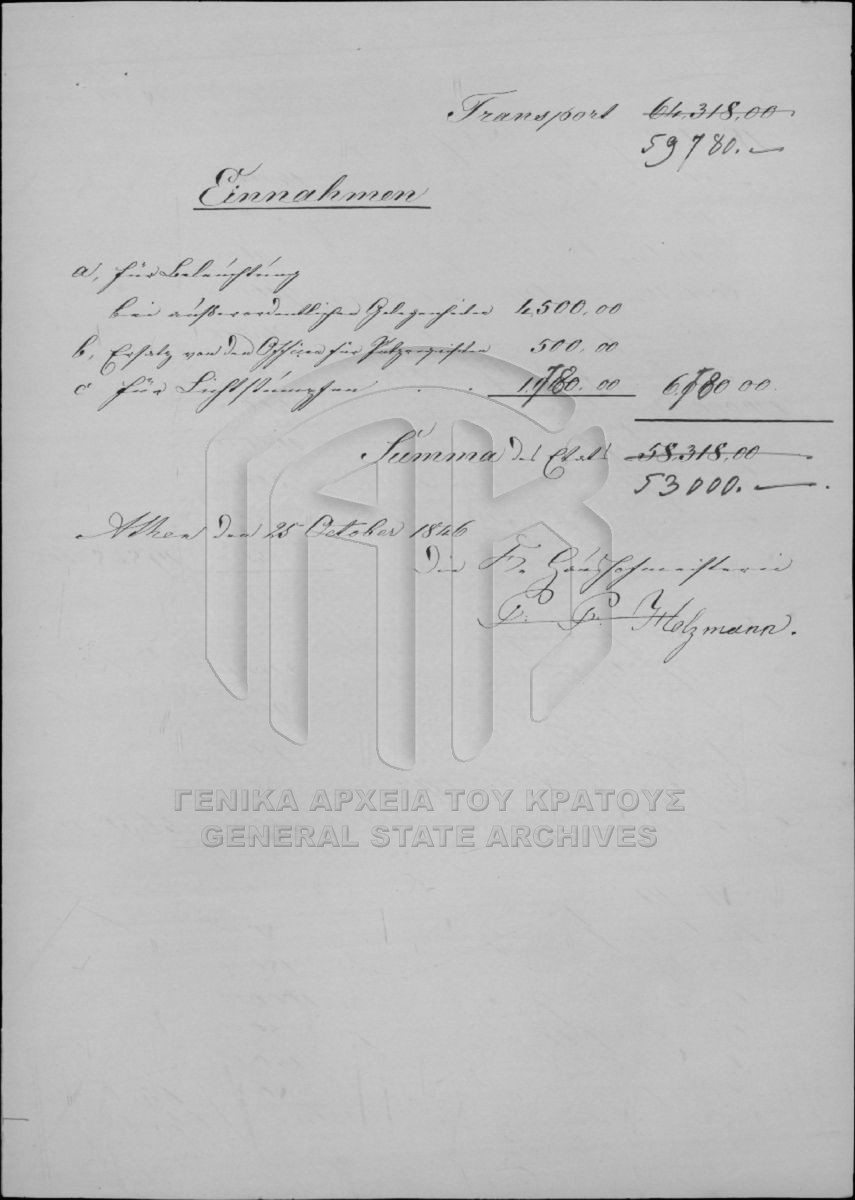 Transport 64,318.00
59780.—
Einnahmen
a, für Beleuchtung
bei außerordentlichen Gelegenheiten 4,500.00
b, Ersatz von den Offizien für 500.00
c für Lichtstumpfen . . 1,780.00 6,780 00
Summa des Etats 58,318,00
53000.—.
Athen den 25 October 1846
Die K. Haushofmeisterin
P. P. Holzmann.
ΓΕΝΙΚΑ ΑΡΧΕΙΑ ΤΟΥ ΚΡΑΤΟΥΣ
GENERAL STATE ARCHIVES